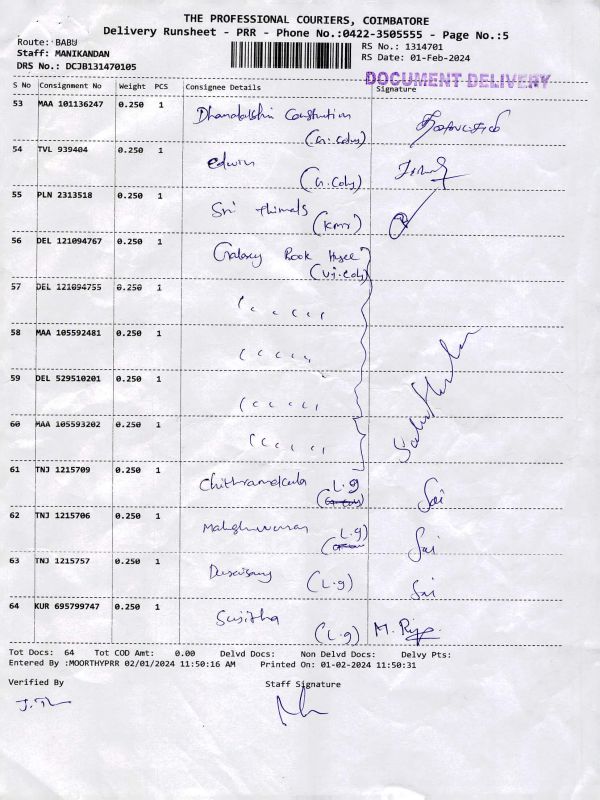 THE PROFESSIONAL COURIERS, COIMBATORE
Delivery Runsheet - PRR - Phone No.:0422-3505555 - Page No.:5
Route: BABU
RS No.: 1314701
Staff: MANIKANDAN
RS Date: 01-Feb-2024
DRS No.: DCJB131470105
DOCUMENT DELIVERY
S No Consignment No Weight PCS Consignee Details Signature
53 MAA 101136247 0.250 1
54 TVL 939404 0.250 1 edwin
55 PLN 2313518 0.250 1 Sri
(kmr)
56 DEL 121094767 0.250 1 Galaxy Book
57 DEL 121094755 0.250 1
58 MAA 105592481 0.250 1
59 DEL 529510201 0.250 1
60 MAA 105593202 0.250 1
61 TNJ 1215709 0.250 1 (L.g Sai
62 TNJ 1215706 0.250 1 L.g) Sai
63 TNJ 1215757 0.250 1 (L.g) Sai
64 KUR 695799747 0.250 1 Sujitha
(L.g)
Tot Docs: 64 Tot COD Amt: 0.00 Delvd Docs: Non Delvd Docs: Delvy Pts:
Entered By :MOORTHYPRR 02/01/2024 11:50:16 AM Printed On: 01-02-2024 11:50:31
Verified By Staff Signature